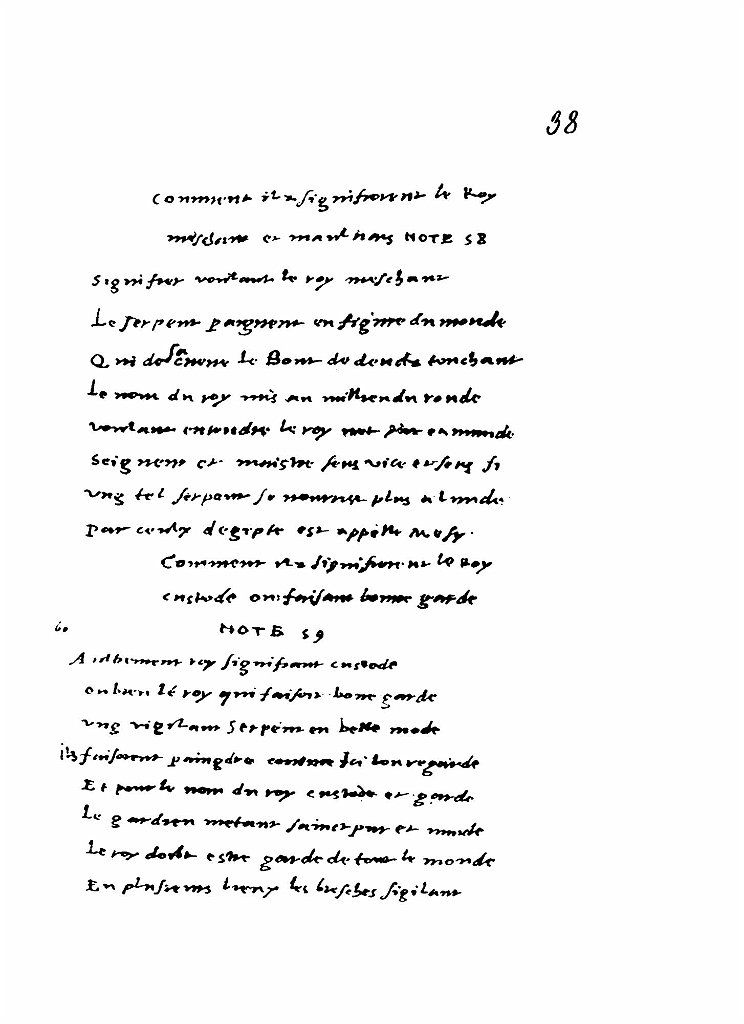 38
Comment ilz signifioient le Roy
meschant et maulvais NOTE 58
Signifier voulant le roy meschant
Le serpent paignent en figure du monde
Qui de sa cueue le Bout de dendz touchant
Le nom du roy mis au millieu du ronde
voulant entendre le roy munde
Seigneur et maistre sens vice
ung tel serpant se nourrist plus a
Par ceulx degipte est appelle
Comment ilz signifioient le Roy
custode ou faisant bonne garde
60
NOTE 59
Aultrement roy signifiant custode
ou bien le roy qui faisoit bone garde
ung vigilant Serpent en belle mode
ilz faisoient paingdre comme Ici lon regarde
Et pour le nom du roy custode et garde
Le gardien metant sainct pur et munde
Le roy doibt estre garde de tout le monde
En plusieurs lieux les bresches sigilant